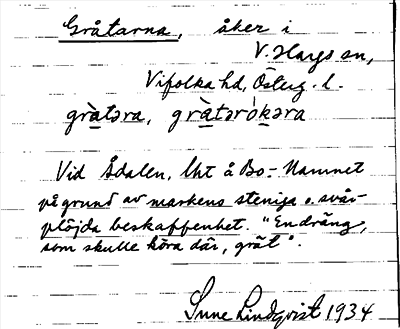 Gråtarna, åker i
V. Hargs sn,
Vifolka hd, Österg. l.
gràtəra, gràtərókəra
Vid Ådalen, lht å Bo. – Namnet
på grund av markens steniga o. svår-
plöjda beskaffenhet. "En dräng,
som skulle köra där, grät".
Sune Lindqvist 1934